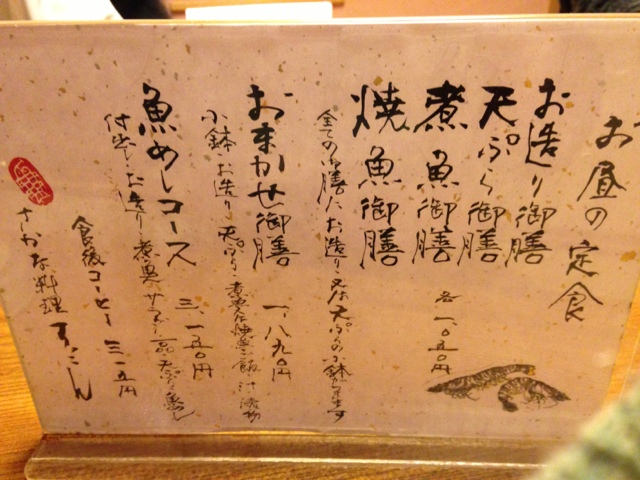 お昼の定食
お造り御膳
天ぷら御膳
煮魚御膳
焼魚御膳
各一、〇五〇円
全ての御膳に、お造り又は天ぷらの小鉢がつきます
おまかせ御膳
一、八九〇円
小鉢・お造り・天ぷら・煮魚又は焼魚・ご飯・汁・漬物
魚めしコース
三、一五〇円
付出し・お造り・煮魚・サラダ・一品・天ぷら・魚めし
食後コーヒー 三一五円
さかな料理